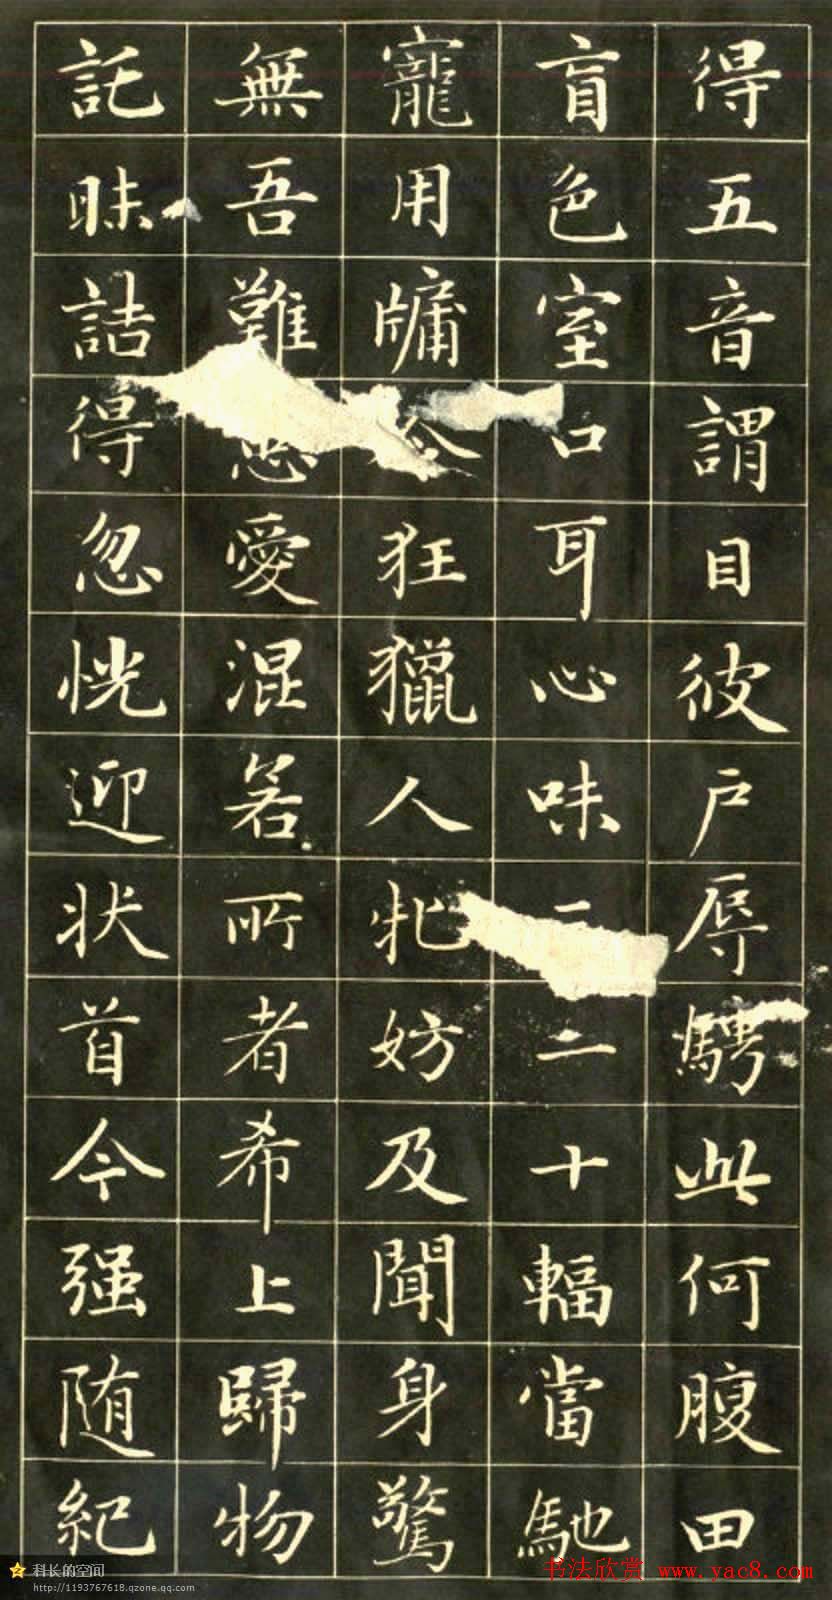 得五音謂目彼戶辱騁此何腹田
盲色室口耳心味二十輻當馳
寵用牗狂獵人牝妨及聞身驚
無吾難愛混若所者希上歸物
託昧詰得忽恍迎状首今强随紀
科长的空间
http://1193767618.qzone.qq.com
书法欣赏 www.yac8.com